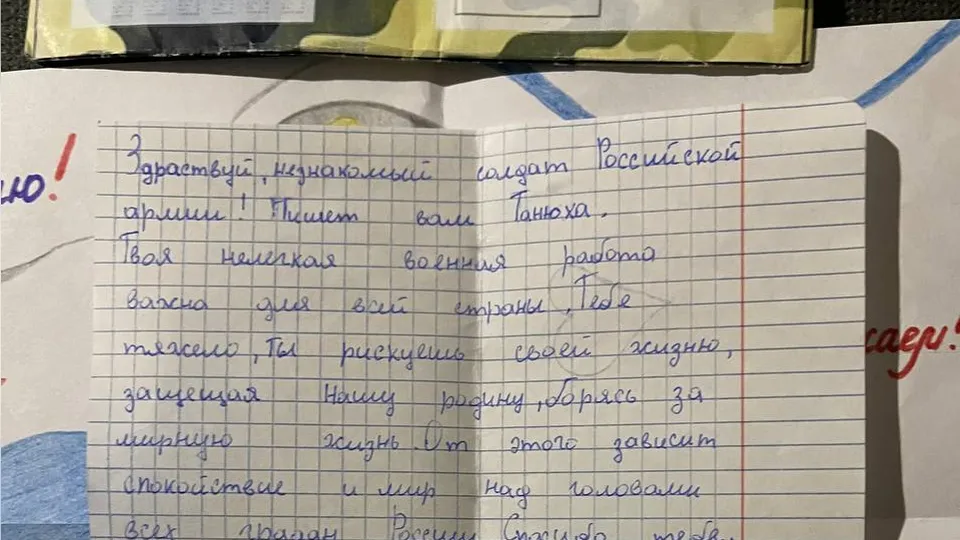 ю!
Здраствуй, незнакомый солдат Российской
армии! Пишет вам Танюха.
Твоя нелегкая военная работа
важна для всей страны. Тебе
тяжело, ты рискуешь своей жизнью,
защещая Нашу родину, борясь за
мирную жизнь. От этого зависит
спокойствие и мир над головами
всех градан России. Спасибо тебе,
саем!